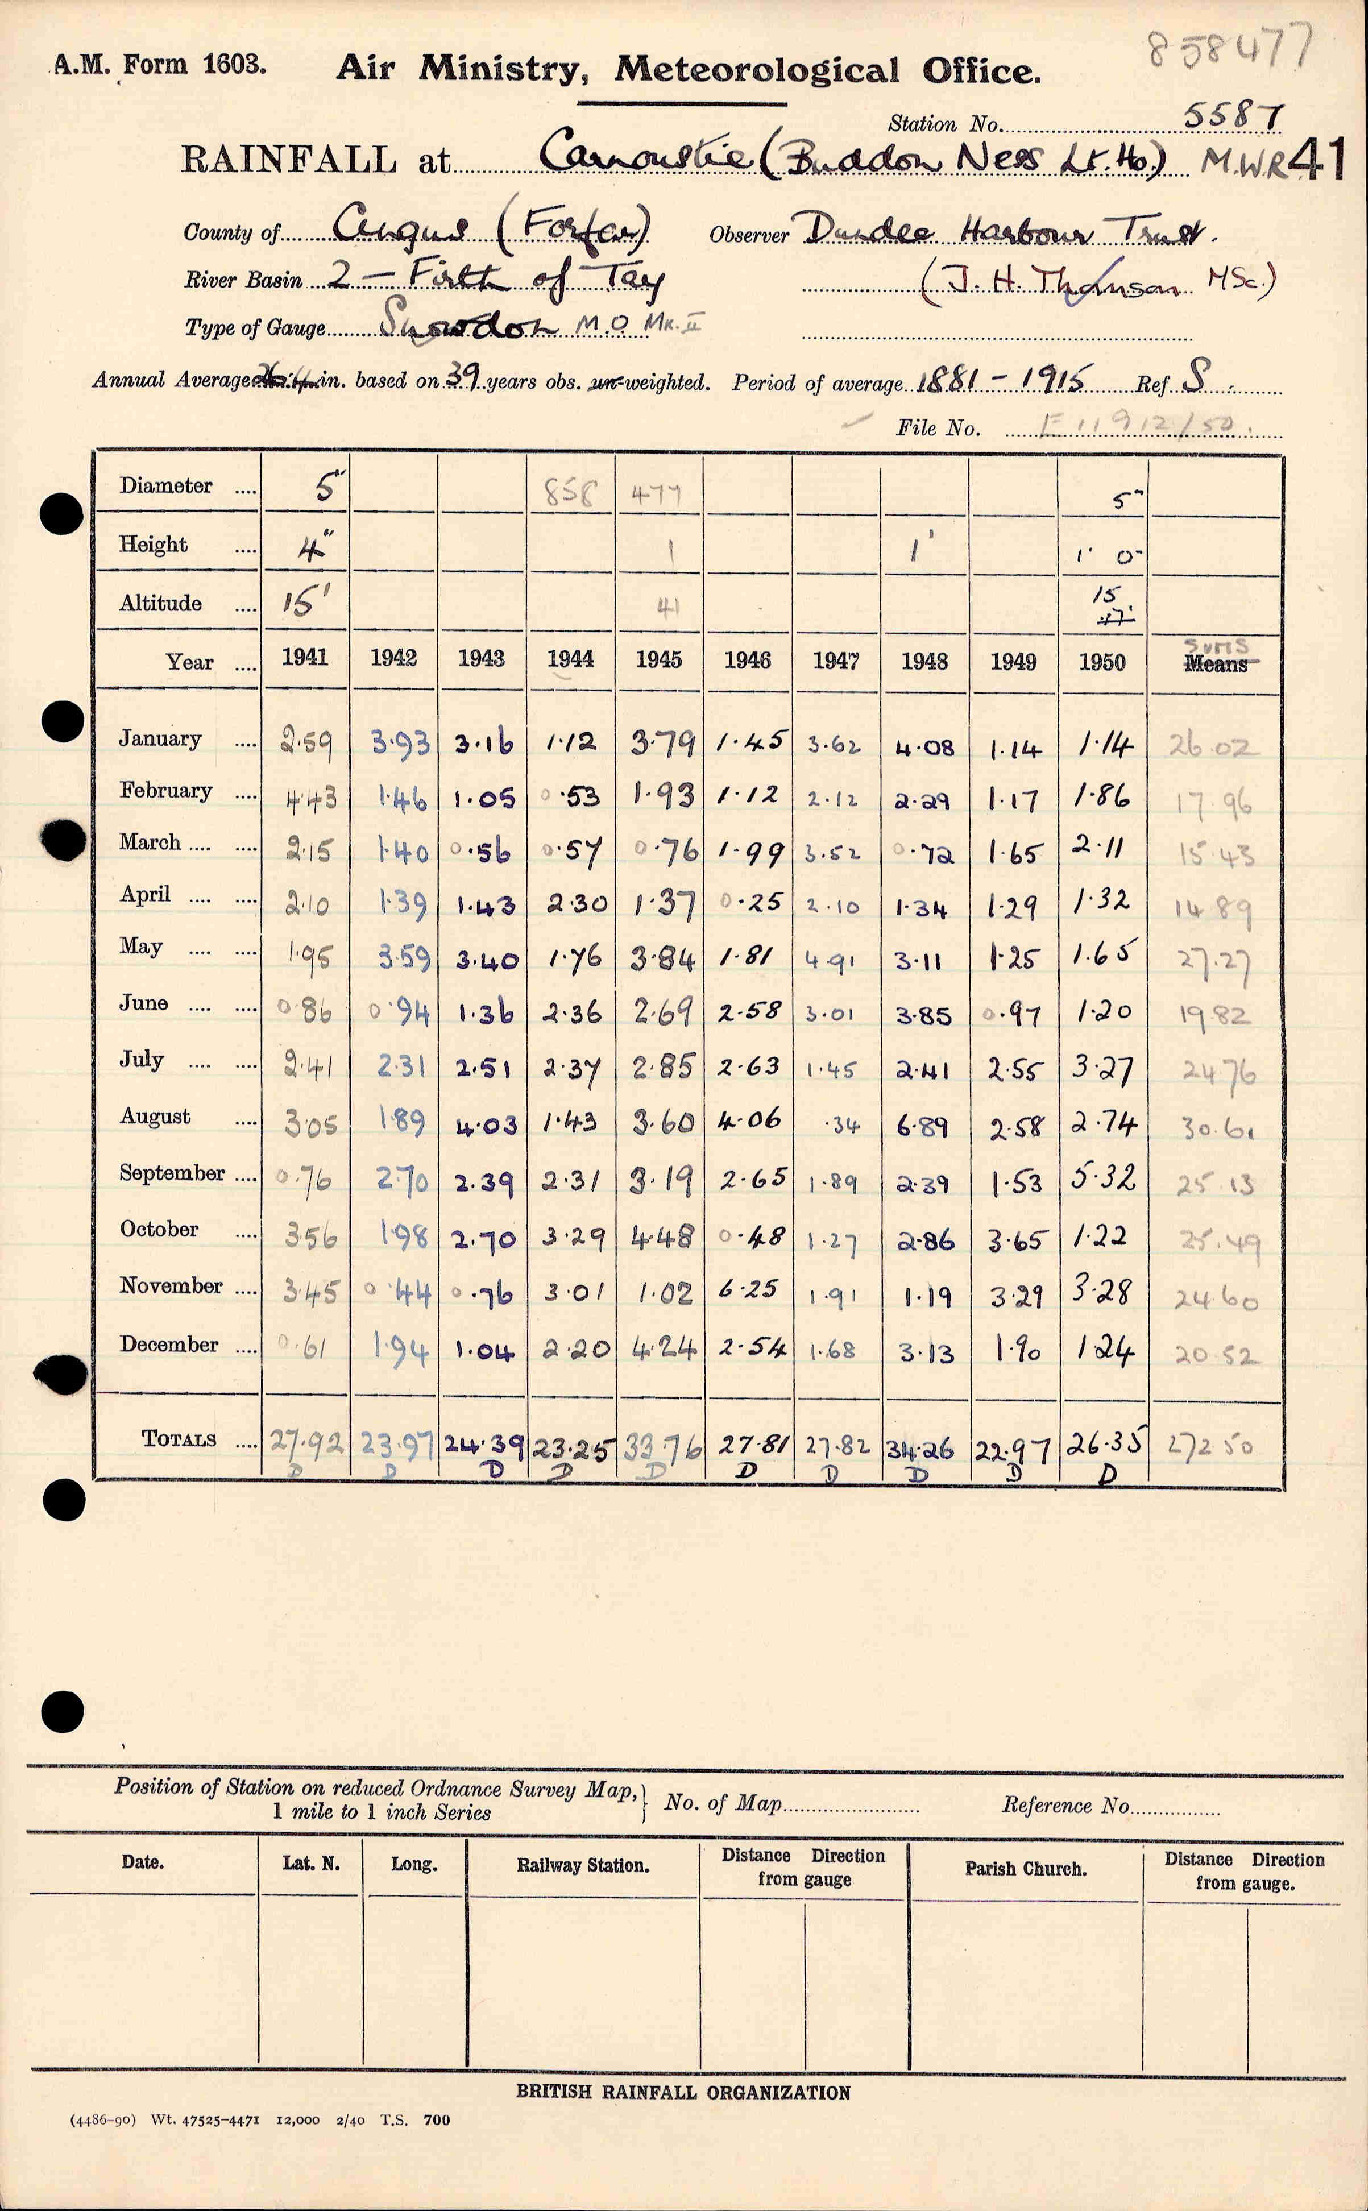 858477
A.M. Form 1603. Air Ministry, Meteorological Office.
Station No. 5587
RAINFALL at Carnoustie (Buddon Ness Lt. Ho.) M.W.R 41
County of Angus (Forfar) Observer Dundee Harbour Trust.
River Basin 2 – Firth of Tay (J. H. Thomson MSc.)
Type of Gauge Snowdon M.O Mk. II
Annual Average 26.4 in. based on 39 years obs. un-weighted. Period of average 1881 – 1915 Ref. S.
File No. E 11912/50.
Diameter .... 5" 858 477 5"
Height .... 4" 1 1' 1' 0"
Altitude .... 15' 41 15
17'
Sums
Year .... 1941 1942 1943 1944 1945 1946 1947 1948 1949 1950 Means
January .... 2.59 3.93 3.16 1.12 3.79 1.45 3.62 4.08 1.14 1.14 26.02
February .... 4.43 1.46 1.05 0.53 1.93 1.12 2.12 2.29 1.17 1.86 17.96
March .... .... 2.15 1.40 0.56 0.57 0.76 1.99 3.52 0.72 1.65 2.11 15.43
April .... .... 2.10 1.39 1.43 2.30 1.37 0.25 2.10 1.34 1.29 1.32 14.89
May .... .... 1.95 3.59 3.40 1.76 3.84 1.81 4.91 3.11 1.25 1.65 27.27
June .... .... 0.86 0.94 1.36 2.36 2.69 2.58 3.01 3.85 0.97 1.20 19.82
July .... .... 2.41 2.31 2.51 2.37 2.85 2.63 1.45 2.41 2.55 3.27 24.76
August .... 3.05 1.89 4.03 1.43 3.60 4.06 .34 6.89 2.58 2.74 30.61
September .... 0.76 2.70 2.39 2.31 3.19 2.65 1.89 2.39 1.53 5.32 25.13
October .... 3.56 1.98 2.70 3.29 4.48 0.48 1.27 2.86 3.65 1.22 25.49
November .... 3.45 0.44 0.76 3.01 1.02 6.25 1.91 1.19 3.29 3.28 24.60
December .... 0.61 1.94 1.04 2.20 4.24 2.54 1.68 3.13 1.90 1.24 20.52
TOTALS .... 27.92 23.97 24.39 23.25 33.76 27.81 27.82 34.26 22.97 26.35 272.50
D D D D D D D D D D
Position of Station on reduced Ordnance Survey Map,
1 mile to 1 inch Series } No. of Map Reference No.
Date. Lat. N. Long. Railway Station. Distance Direction from gauge Parish Church. Distance Direction from gauge.
BRITISH RAINFALL ORGANIZATION
(4486–90) Wt. 47525–4471 12,000 2/40 T.S. 700